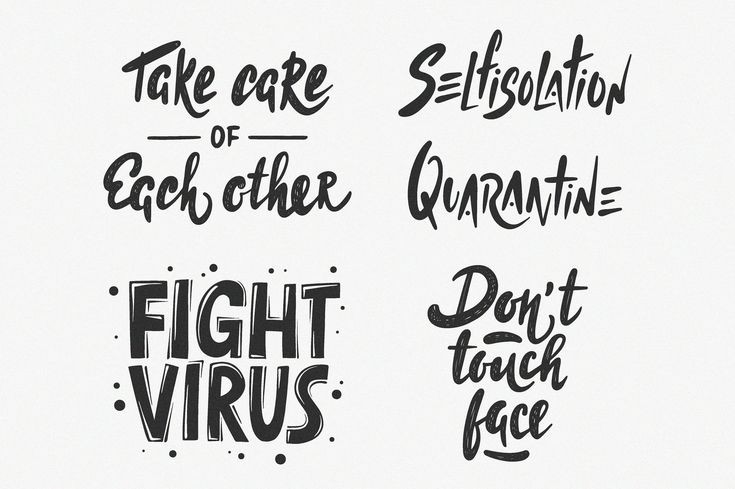 Take care
OF
Each other
Selfisolation
Quarantine
FIGHT
VIRUS
Don't
touch
face